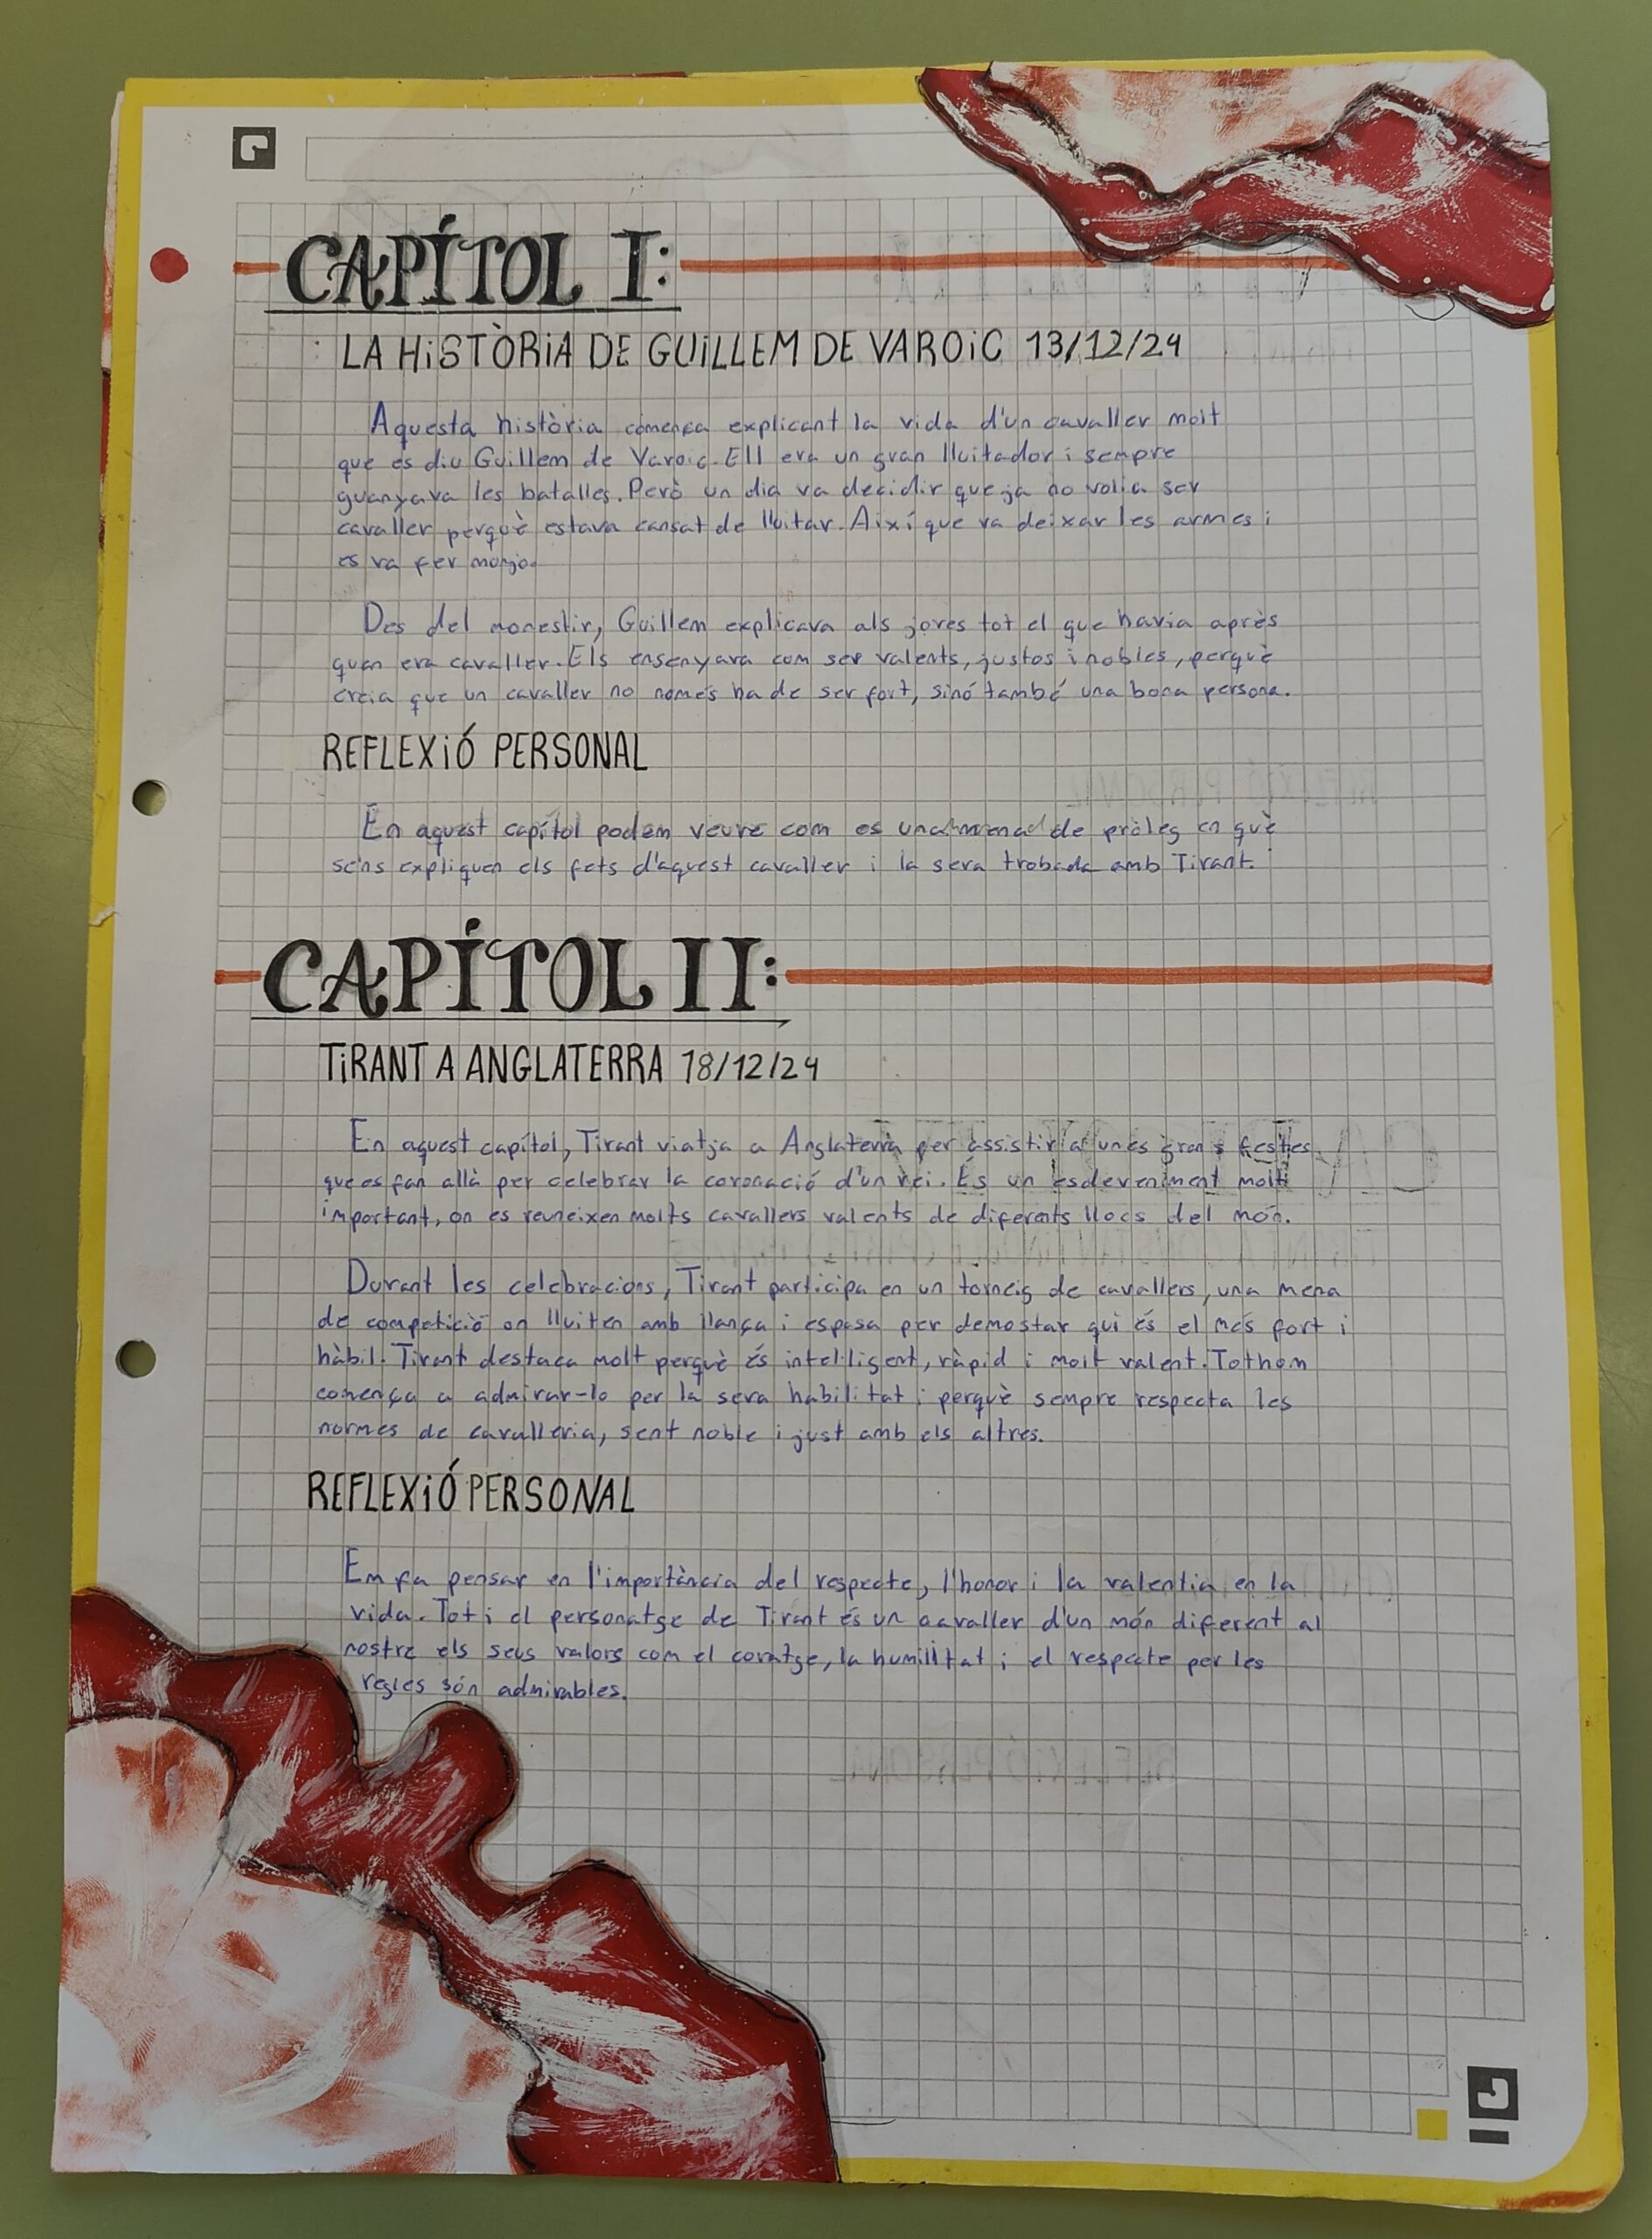 CAPÍTOL I:
LA HISTÒRIA DE GUILLEM DE VAROIC 13/12/24
Aquesta història comença explicant la vida d'un cavaller molt
que es diu Guillem de Varoic. Ell era un gran lluitador i sempre
guanyava les batalles. Però un dia va decidir que ja no volia ser
cavaller perquè estava cansat de lluitar. Així que va deixar les armes i
es va fer monjo.
Des del monestir, Guillem explicava als joves tot el que havia après
quan era cavaller. Els ensenyava com ser valents, justos i nobles, perquè
creia que un cavaller no només ha de ser fort, sinó també una bona persona.
REFLEXIÓ PERSONAL
En aquest capítol podem veure com es una mena de pròleg en què
sens expliquen els fets d'aquest cavaller i la seva trobada amb Tirant.
CAPÍTOL II:
TIRANT A ANGLATERRA 18/12/24
En aquest capítol, Tirant viatja a Anglaterra per assistir a unes grans festes
que es fan allà per celebrar la coronació d'un rei. És un esdeveniment molt
important, on es reuneixen molts cavallers valents de diferents llocs del món.
Durant les celebracions, Tirant participa en un torneig de cavallers, una mena
de competició on lluiten amb llança i espasa per demostar qui és el més fort i
hàbil. Tirant destaca molt perquè és intel·ligent, ràpid i molt valent. Tothom
comença a admirar-lo per la seva habilitat i perquè sempre respecta les
normes de cavalleria, sent noble i just amb els altres.
REFLEXIÓ PERSONAL
Em fa pensar en l'importància del respecte, l'honor i la valentia en la
vida. Tot i el personatge de Tirant és un cavaller d'un món diferent al
nostre els seus valors com el coratge, la humilitat i el respecte per les
regles són admirables.